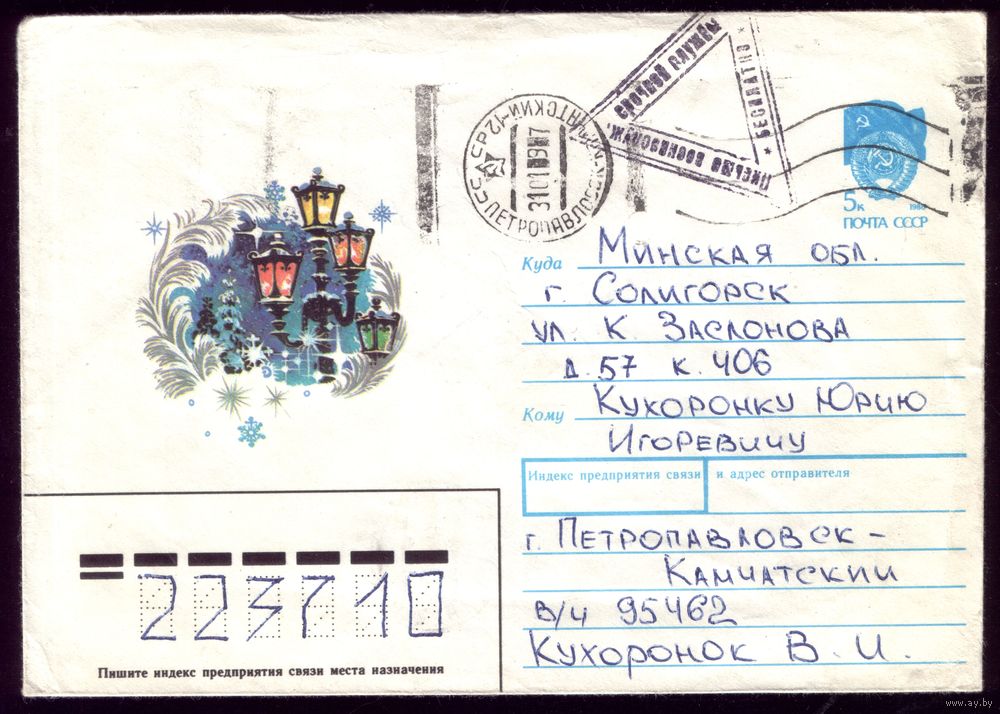 срочной службы
* БЕСПЛАТНО *
Письмо военнослуж.
31 01 91 17
5к
ПОЧТА СССР
Куда Минская обл.
г. Солигорск
ул. К. Заслонова
д. 57 к. 406
Кому Кухоронку Юрию
Игоревичу
Индекс предприятия связи и адрес отправителя
г. Петропавловск-
Камчатский
в/ч 95462
Кухоронок В. И.
223710
Пишите индекс предприятия связи места назначения
www.ay.by